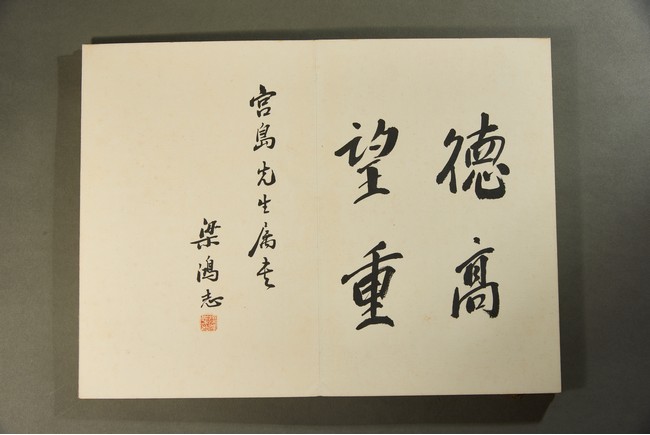 德高
望重
宮島先生属書
梁鴻志